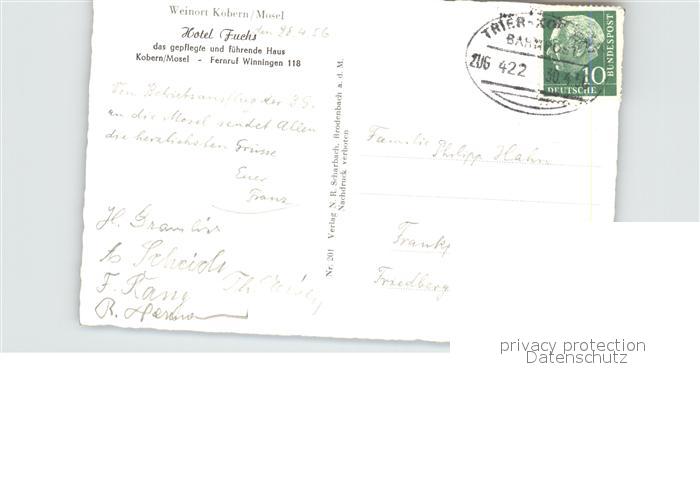 Weinort Kobern/Mosel
Hotel Fuchs den 28.4.56
das gepflegte und führende Haus
Kobern/Mosel - Fernruf Winningen 118
Vom Betriebsausflug der
an die Mosel sendet Allen
die herzlichsten Grüsse
Euer
Franz
H.
Scheid
F.
R.
Nr. 201 Verlag N. R. Scharbach, Brodenbach a. d. M.
Nachdruck verboten
TRIER-KO
BAH
ZUG 422
30.4
10
DEUTSCHE
BUNDESPOST
Familie
Philipp Hahn
Frankf
Friedberg
privacy protection
Datenschutz